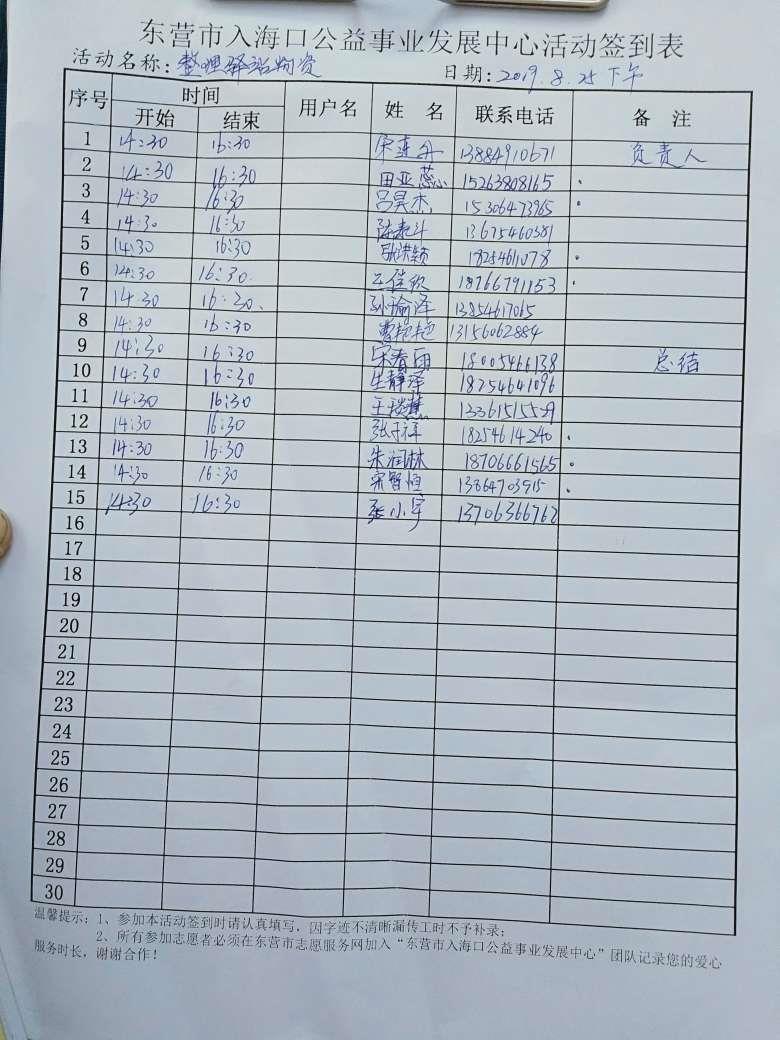 东营市入海口公益事业发展中心活动签到表
活动名称：整理驿站物资 日期：2019.8.25下午
序号 时间 用户名 姓 名 联系电话 备 注
开始 结束
1 14:30 16:30 13884910671 负责人
2 14:30 16:30 田亚蕊 15263808165 .
3 14:30 16:30 吕昊杰 15306473965 .
4 14:30 16:30 13675460381
5 14:30 16:30 张洪颖 1825461078 .
6 14:30 16:30. 王佳欣 18766791153 .
7 14:30 16:30、 孙瑜泽 13854617065
8 14:30 16:30 曹艳艳 13156062884
9 14:30 16:30 宋春雨 18005466138 总结
10 14:30 16:30 生静泽 18754641096
11 14:30 16:30
12 14:30 16:30 张子祥 18254614240 .
13 14:30 16:30 朱润林 18706661565 .
14 14:30 16:30 宋智恒 13864703915 .
15 14:30 16:30 张小宇 13706366762
16
17
18
19
20
21
22
23
24
25
26
27
28
29
30
温馨提示：1、参加本活动签到时请认真填写，因字迹不清晰漏传工时不予补录；
2、所有参加志愿者必须在东营市志愿服务网加入“东营市入海口公益事业发展中心”团队记录您的爱心
服务时长，谢谢合作！